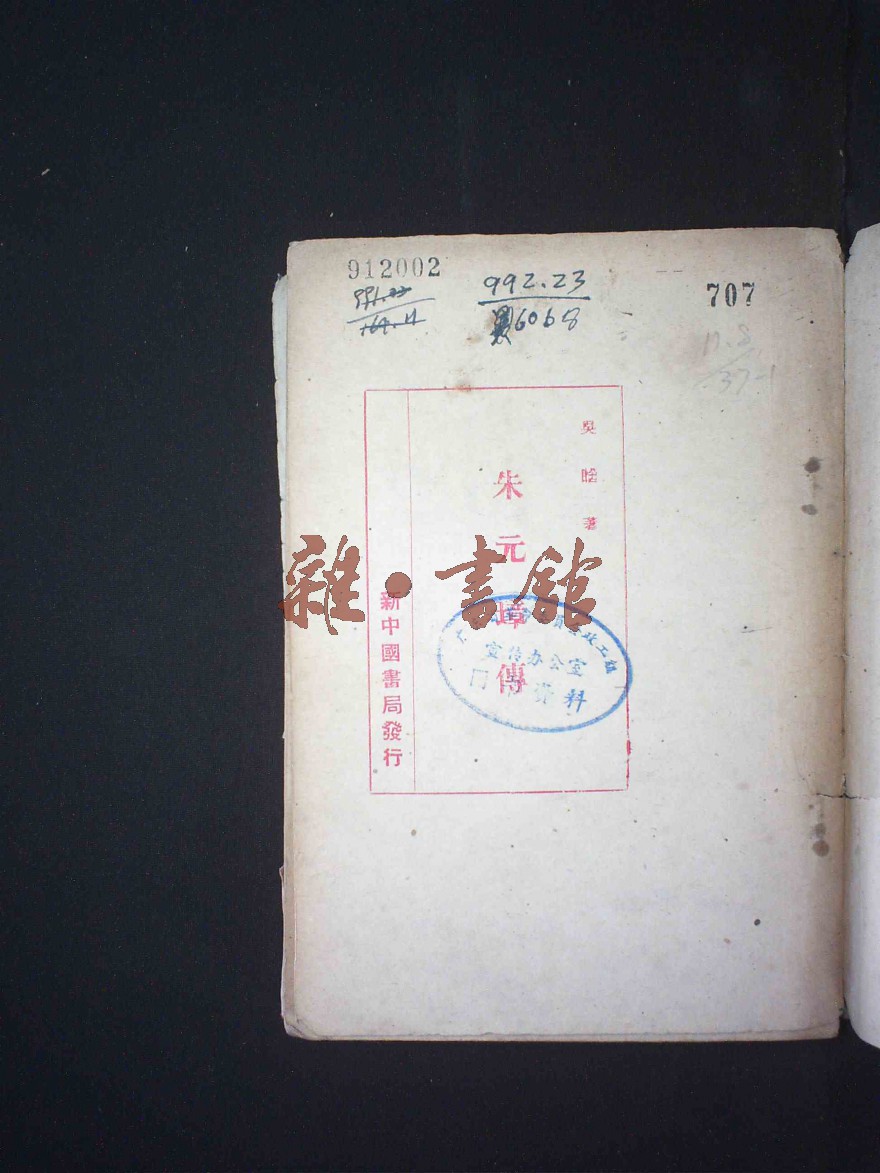 912002
992.23
6068
707
吳晗著
朱元璋傳
新中國書局發行
雜·書館
宣传办公室
資料